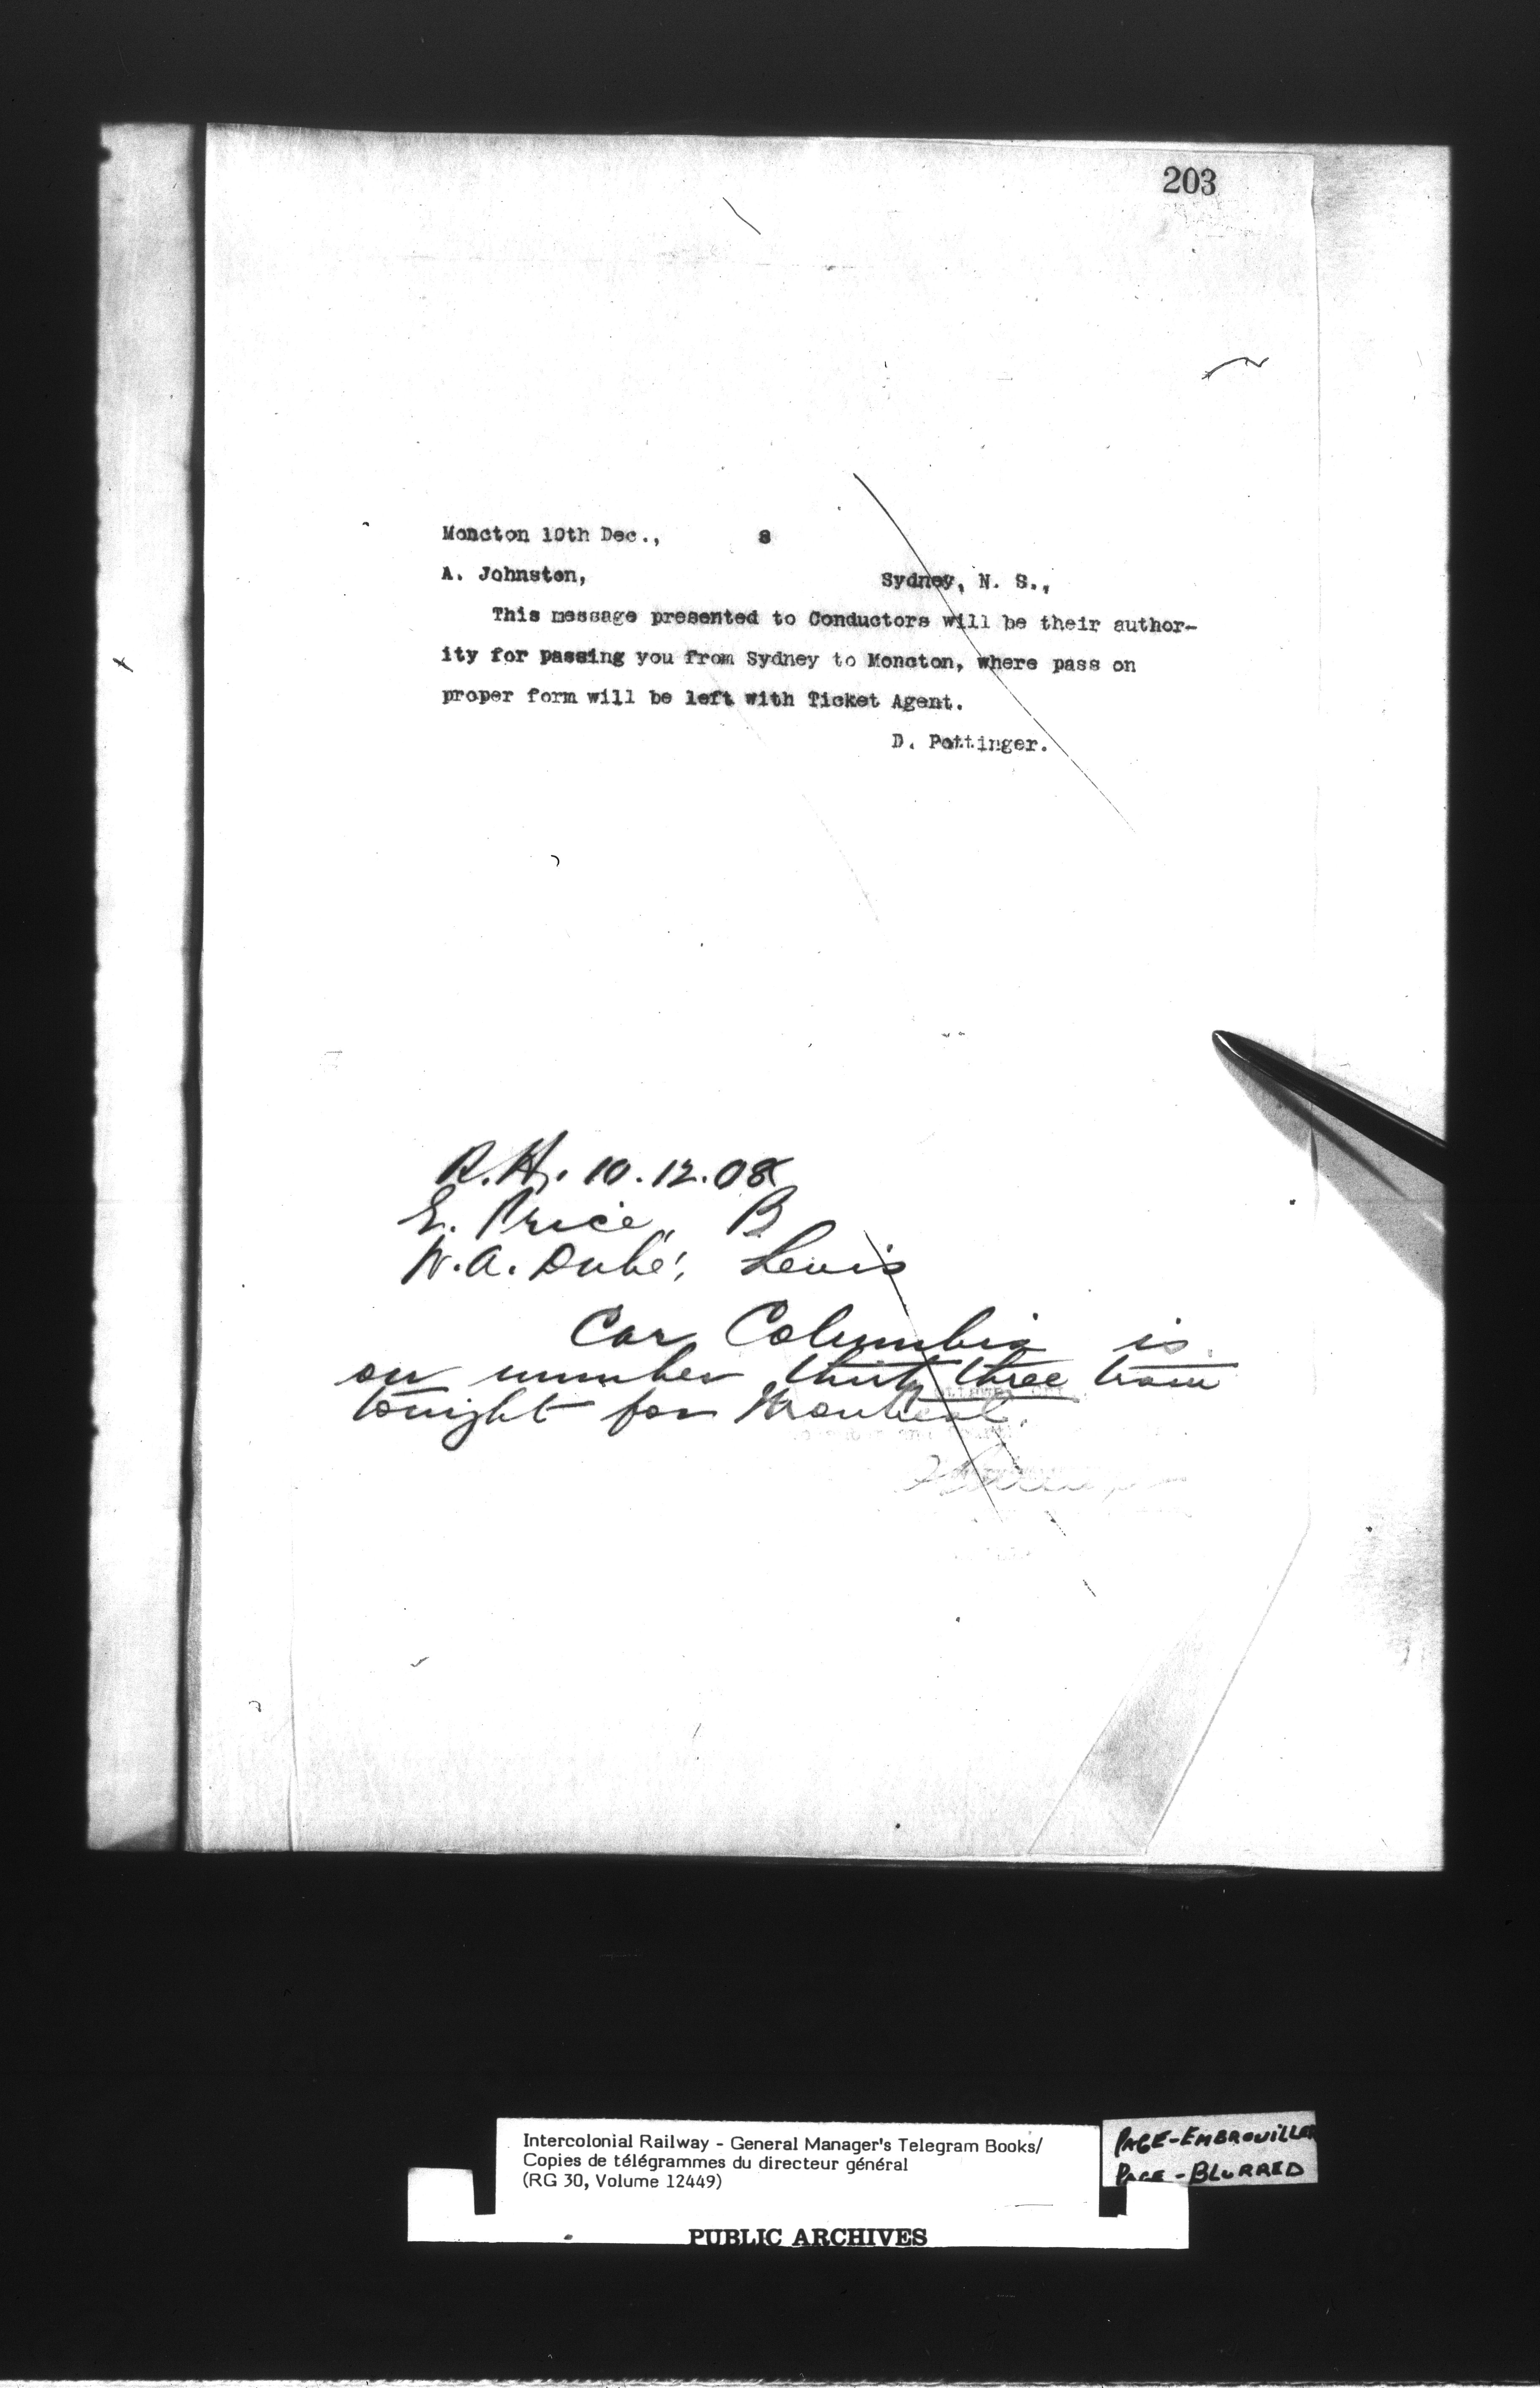 203
Moncton 10th Dec., 8
A. Johnston, Sydney, N. S.,
This message presented to Conductors will be their author-
ity for passing you from Sydney to Moncton, where pass on
proper form will be left with Ticket Agent.
D. Pottinger.
R.H. 10.12.08
E. Price, B
W.A. Dubé, Levis
Car Columbia is
on number thirty three train
tonight for Montreal.
Intercolonial Railway - General Manager's Telegram Books/
Copies de télégrammes du directeur général
(RG 30, Volume 12449)
PAGE-EMBROUILLER
PAGE-BLURRED
PUBLIC ARCHIVES